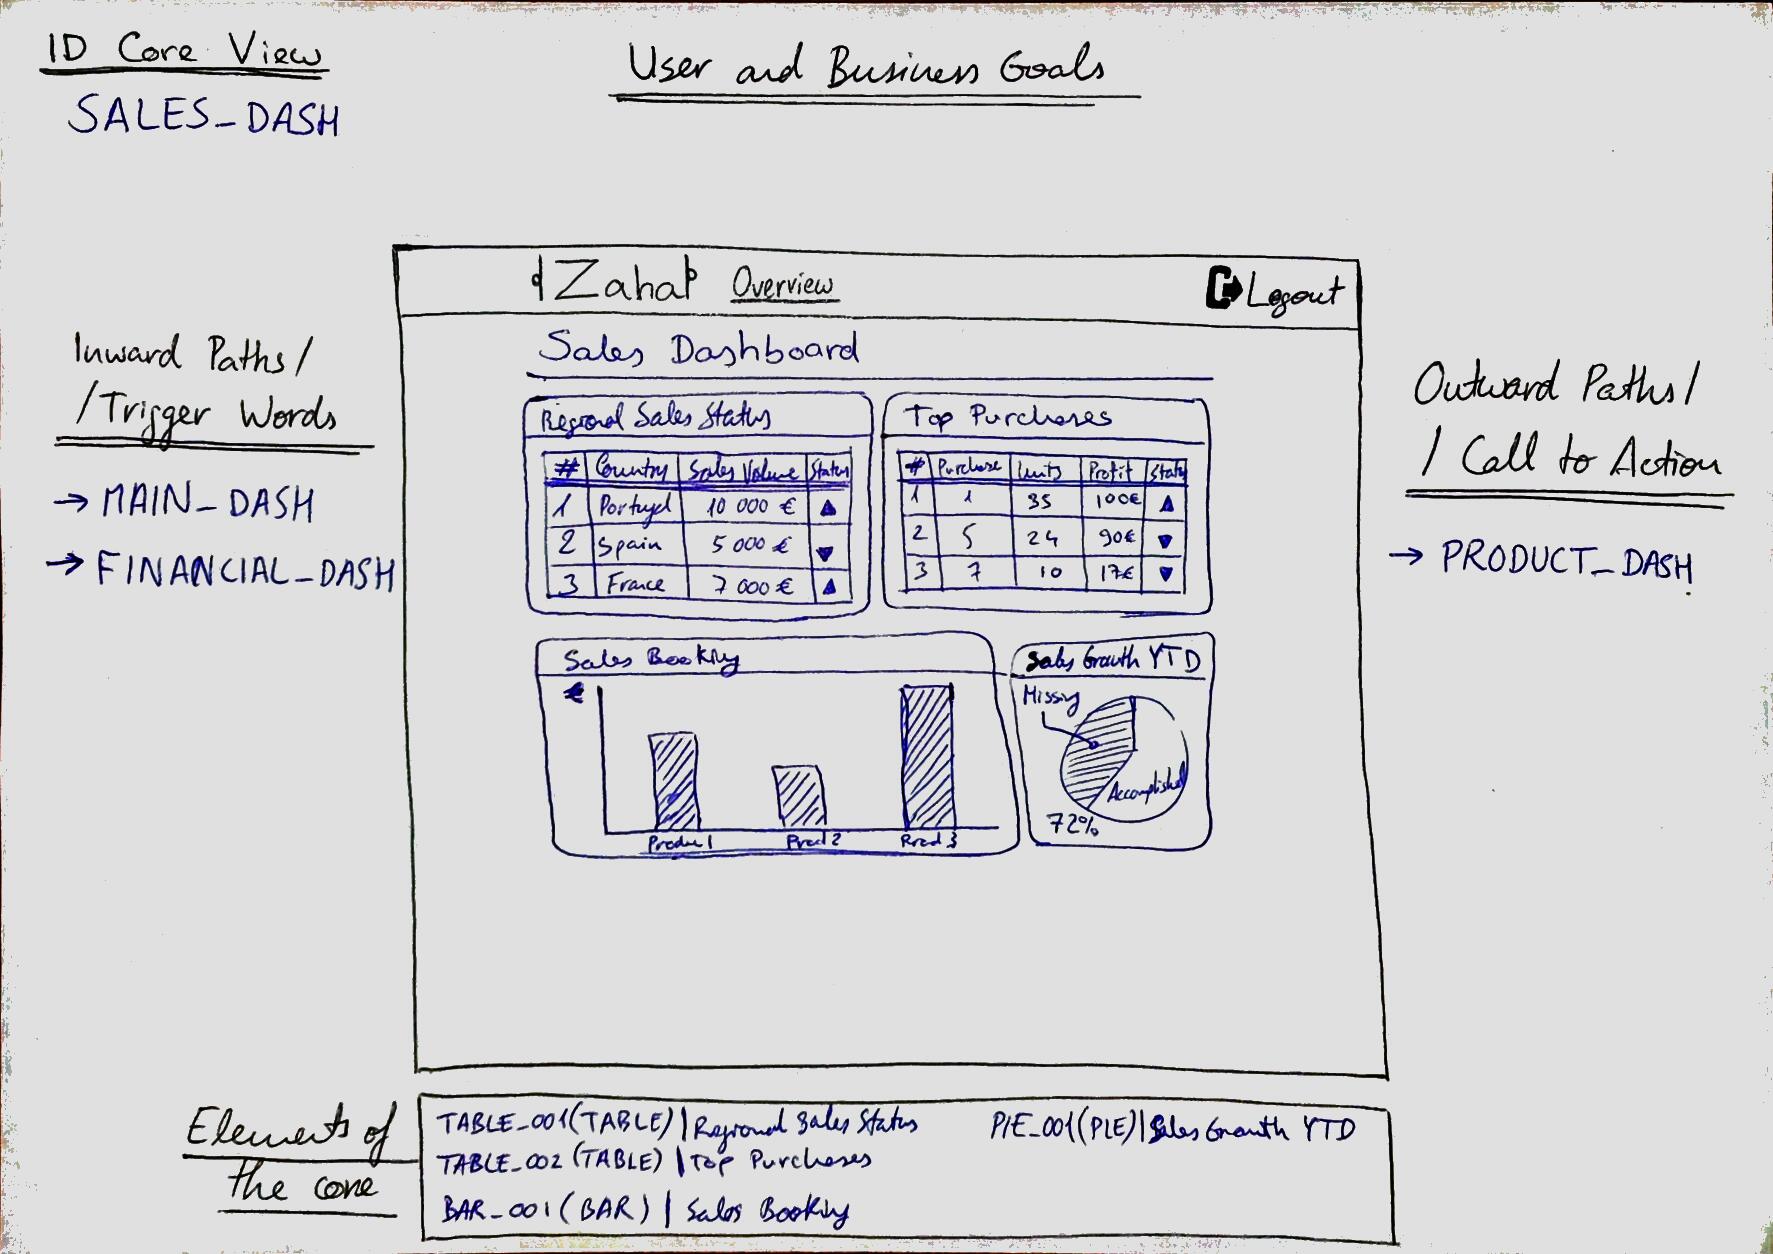 ID Core View
SALES_DASH
User and Business Goals
Zaha Overview
Logout
Sales Dashboard
Inward Paths/
/Trigger Words
→ MAIN_DASH
→ FINANCIAL_DASH
Regional Sales Status
# Country Sales Volume Status
1 Portugal 10 000 € ▲
2 Spain 5 000 € ▼
3 France 7 000 € ▲
Top Purchases
# Purchase Units Profit Status
1 1 35 100€ ▲
2 5 24 90€ ▼
3 7 10 17€ ▼
Sales Booking
€
Produ 1 Prod 2 Prod 3
Sales Growth YTD
Missing
Accomplished
72%
Outward Paths/
/ Call to Action
→ PRODUCT_DASH
Elements of
the core
TABLE_001(TABLE) | Regional Sales Status
TABLE_002 (TABLE) | Top Purchases
BAR_001 (BAR) | Sales Booking
PIE_001(PIE) | Sales Growth YTD